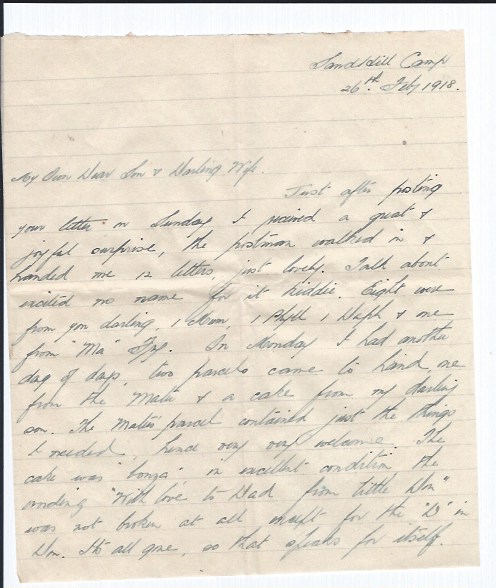 Sandhill Camp
26th. Feby 1918.
My Own Dear Son & Darling Wife.
Just after posting
your letter on Sunday I received a great &
joyful surprise, the postman walked in &
handed me 12 letters, just lovely. Talk about
excited no name for it Kiddie. Eight were
from you darling, 1 Mum, 1 Phyll 1 Daph & one
from "Ma" On Monday I had another
day of days, two parcels came to hand, one
from the Mater & a cake from my darling
son. The Maters parcel contained just the things
I needed, hence very very welcome. The
cake was "bonza", in excellent condition the
wording "With love to Dad from Little Don"
was not broken at all except for the "D" in
Don. Its all gone, so that speaks for itself.